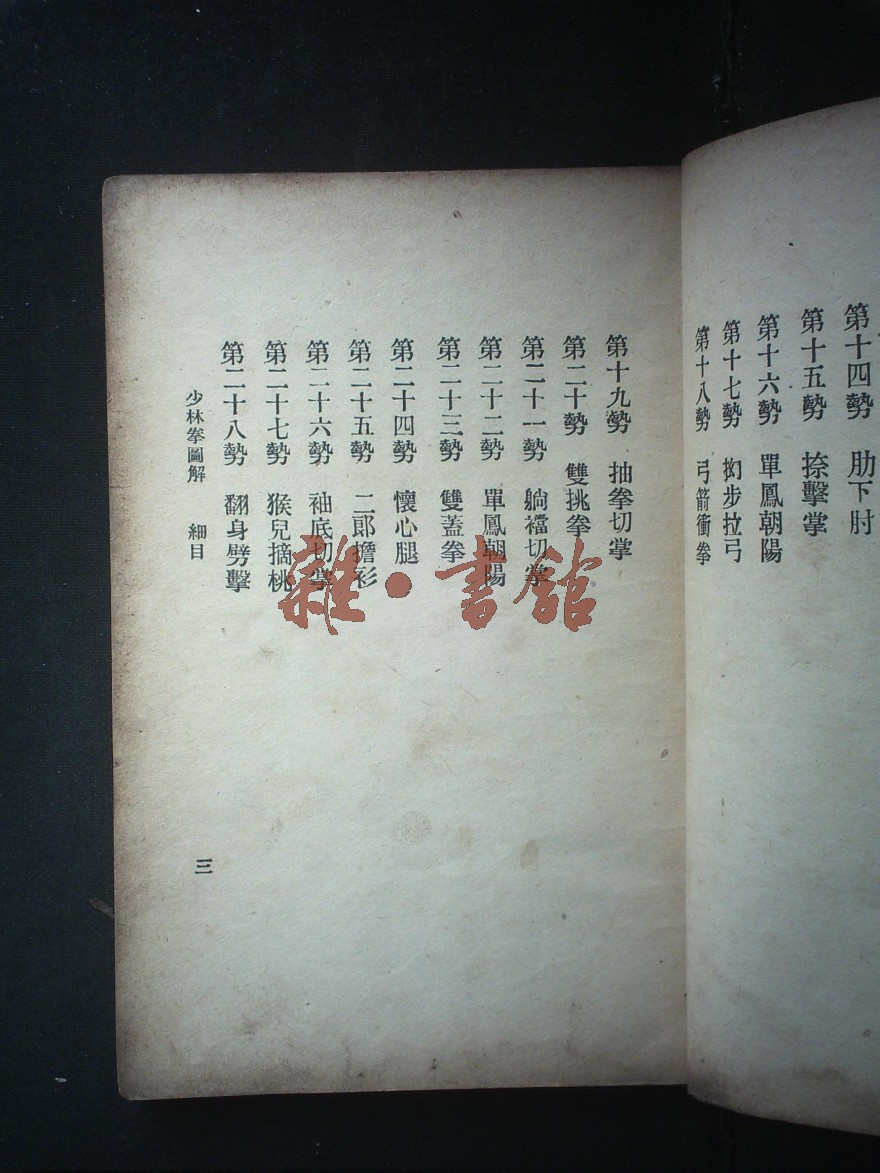 第十四勢　肋下肘
第十五勢　捺擊掌
第十六勢　單鳳朝陽
第十七勢　拗步拉弓
第十八勢　弓箭衝拳
第十九勢　抽拳切掌
第二十勢　雙挑拳
第二十一勢　躺襠切掌
第二十二勢　單鳳朝陽
第二十三勢　雙蓋拳
第二十四勢　懷心腿
第二十五勢　二郎擔衫
第二十六勢　袖底切掌
第二十七勢　猴兒摘桃
第二十八勢　翻身劈擊
少林拳圖解　細目
三
雜·書館